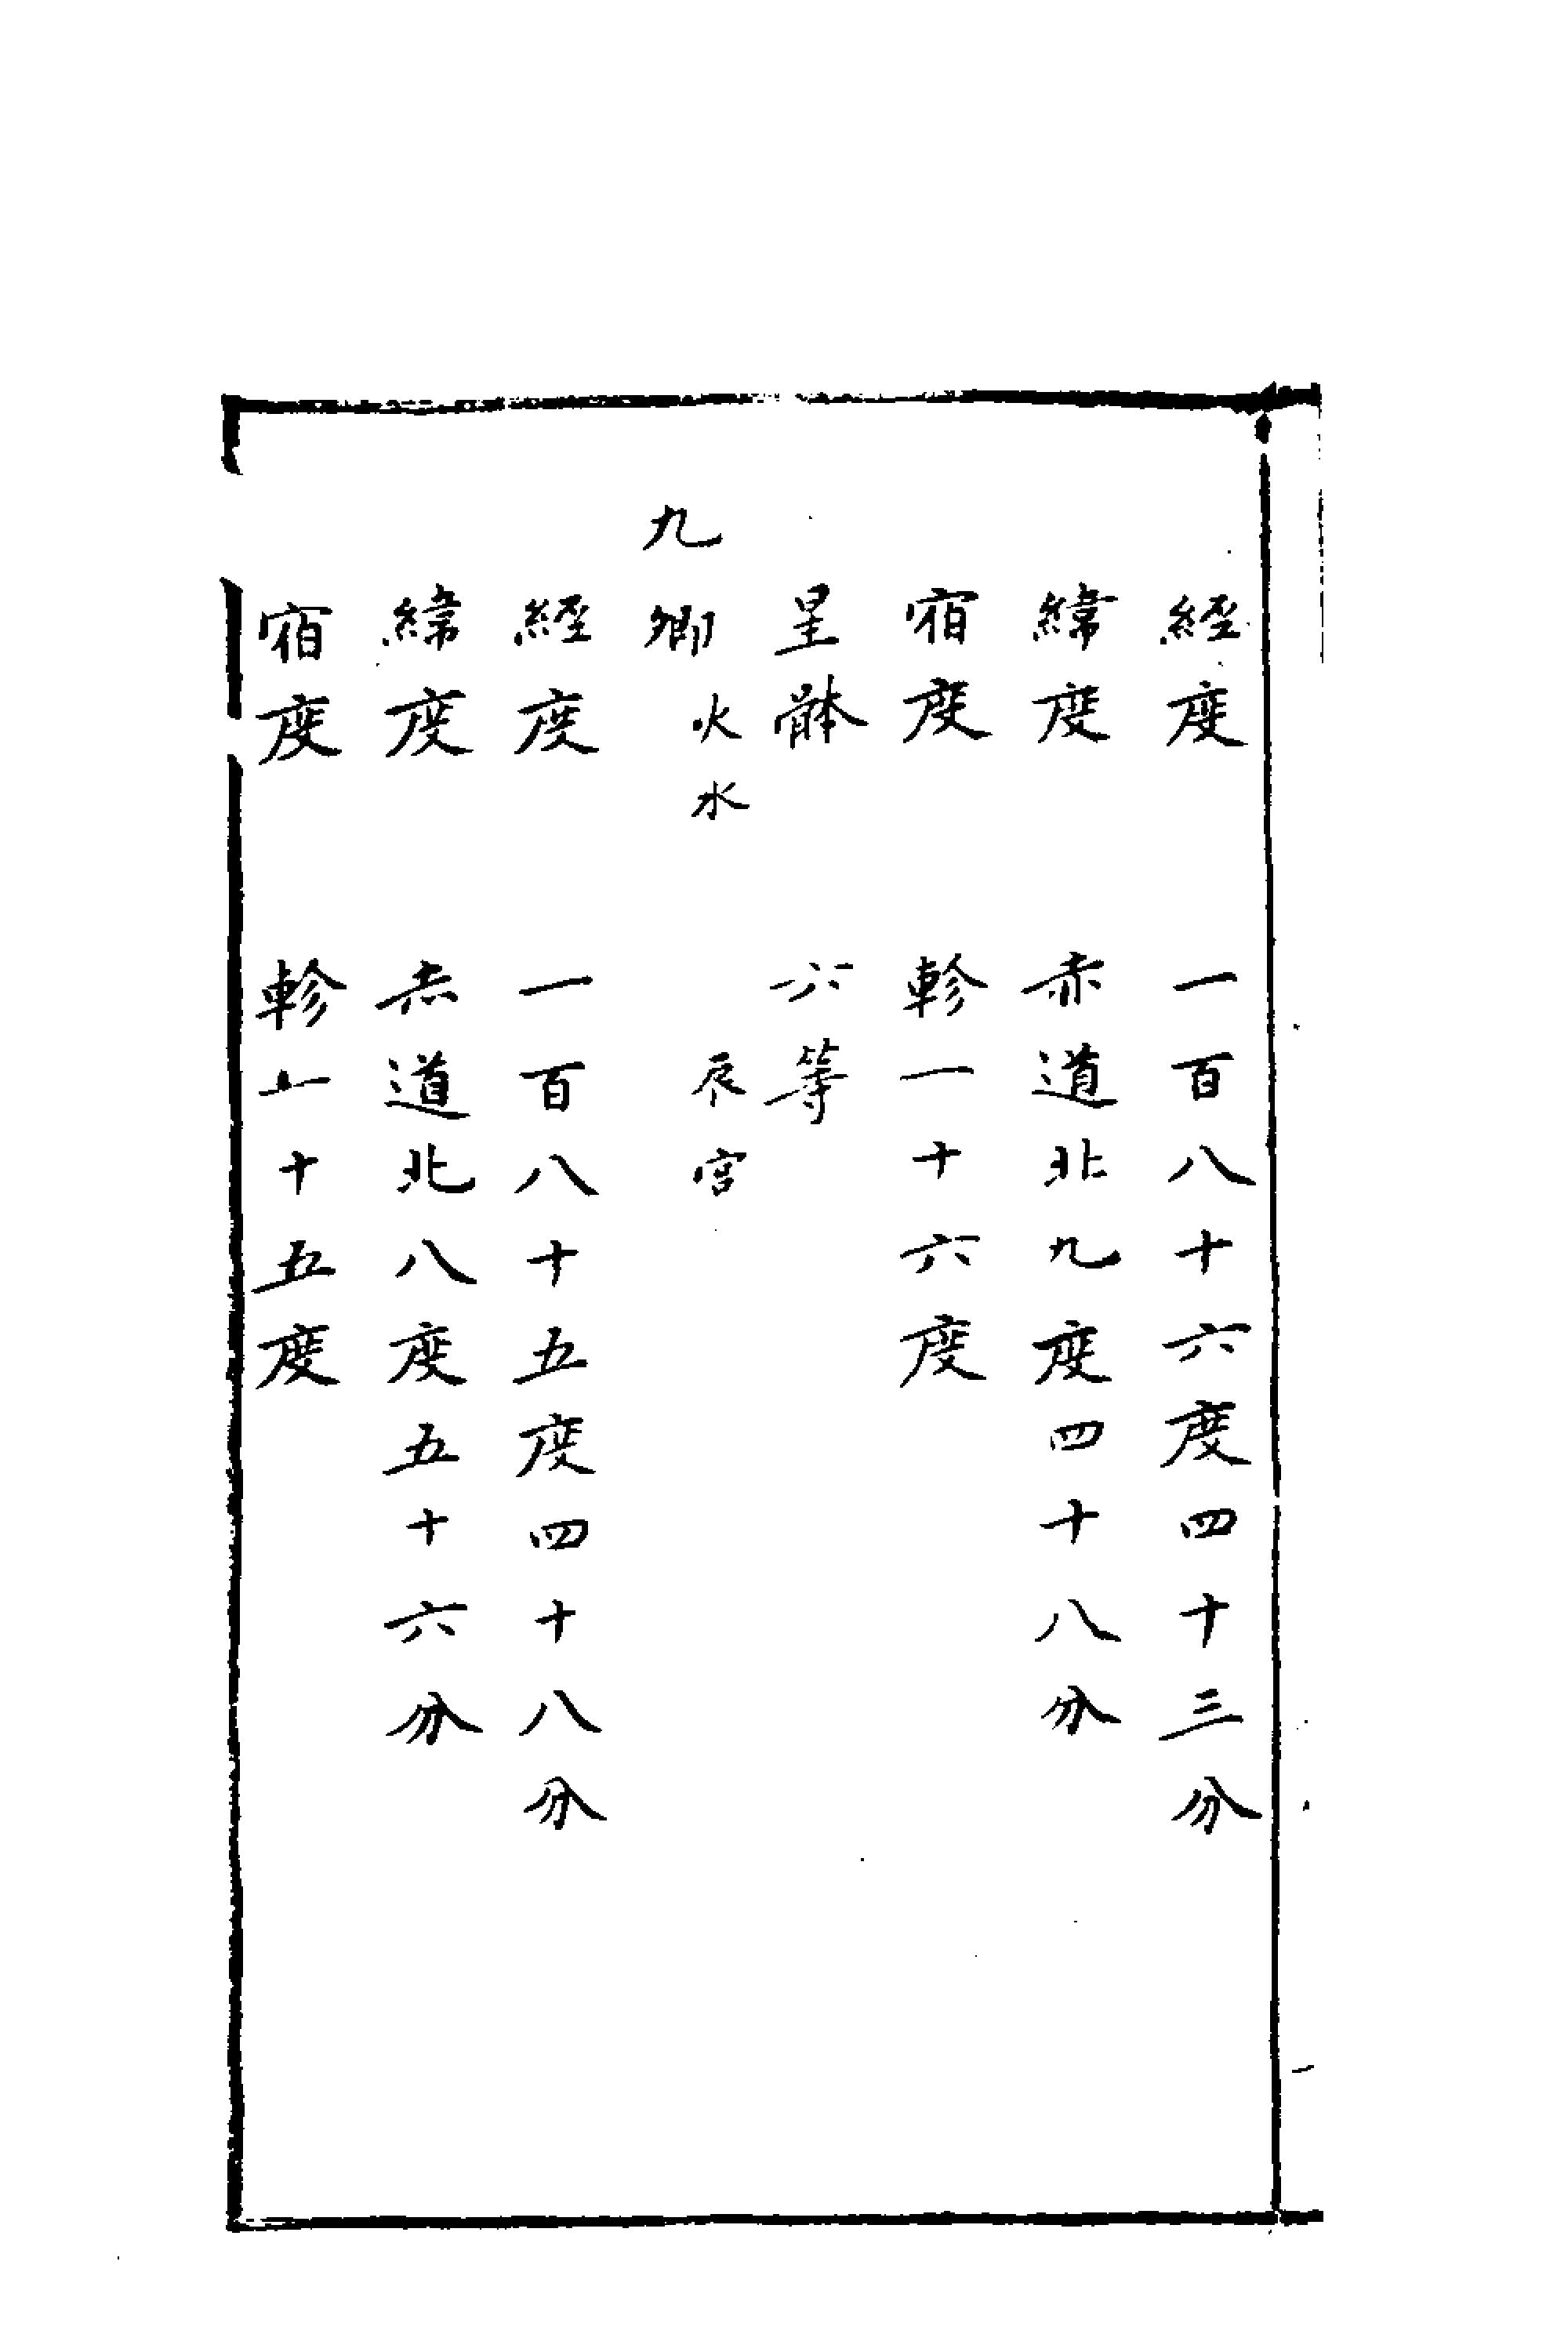 經度 一百八十六度四十三分
緯度 赤道北九度四十八分
宿度 軫一十六度
星体 六等
九卿 火水 辰宮
經度 一百八十五度四十八分
緯度 赤道北八度五十六分
宿度 軫一十五度